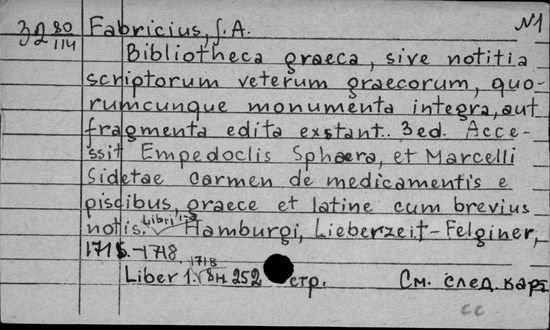 32 80/114 Fabricius, J. A. №1
Bibliotheca graeca, sive notitia
scriptorum veterum graecorum, quo-
rumcunque monumenta integra, aut
fragmenta edita exstant.. 3 ed. Acce-
ssit Empedoclis Sphaera, et Marcelli
Sidetae carmen de medicamentis e
piscibus, graece et latine cum brevius
notis. Libri 1-3 Hamburgi, Lieberzeit-Felginer,
1715.-1718.
Liber 1. 1718 8н. 252 стр. См. след. карт
cc